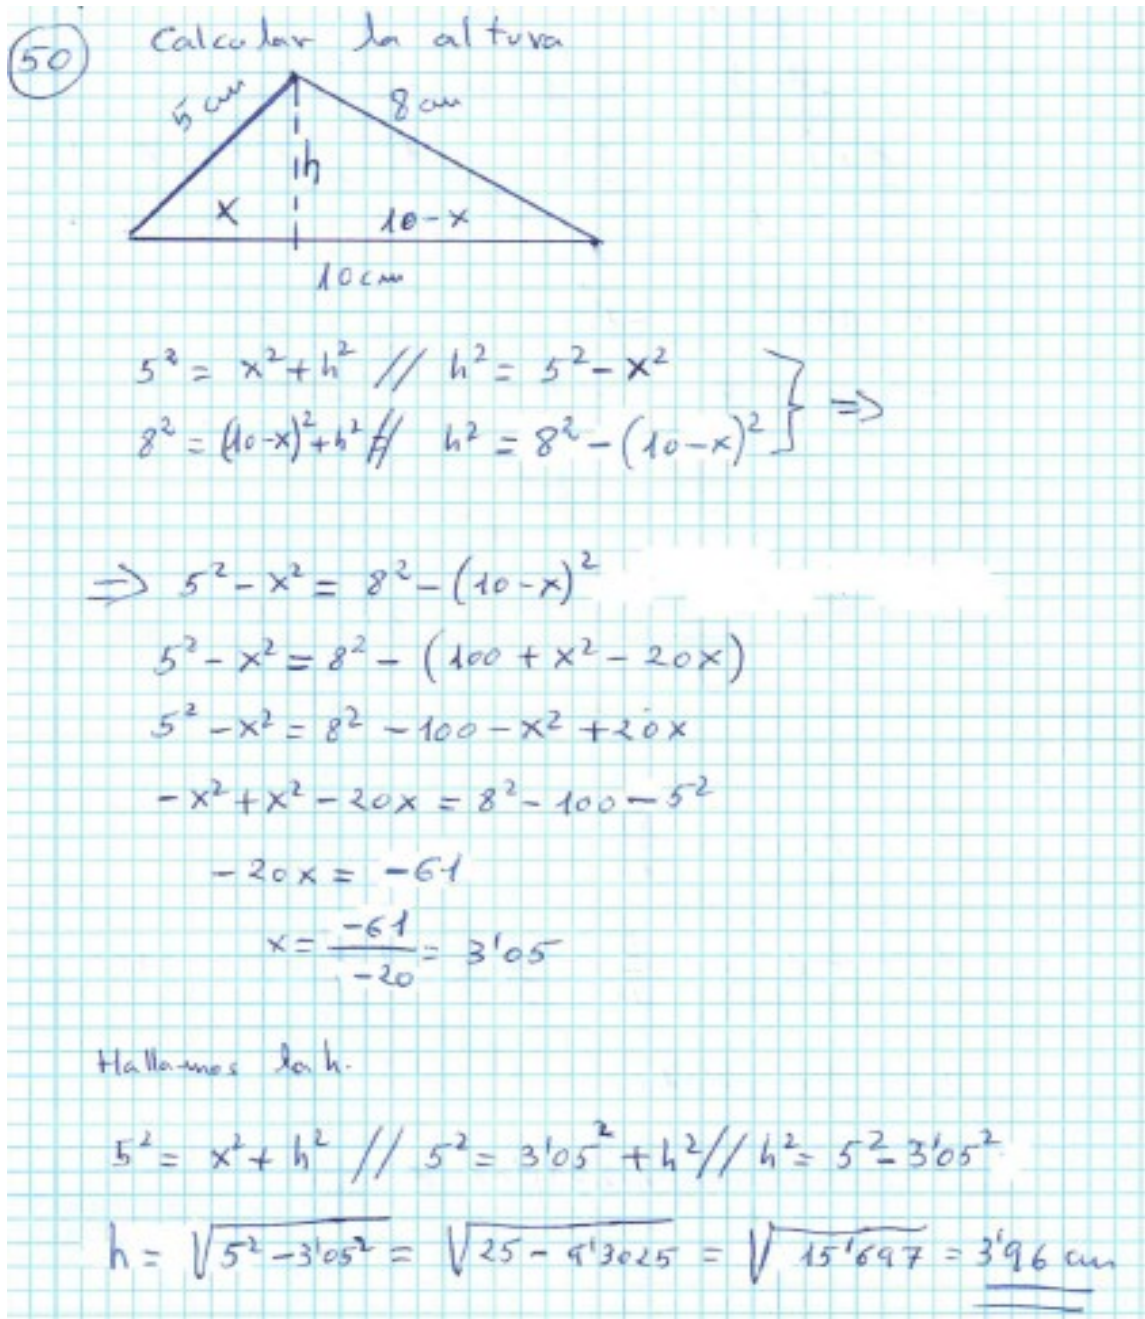 50 Calcular la altura
5 cm 8 cm
h
x 10-x
10 cm
5² = x² + h² // h² = 5² - x² } ⇒
8² = (10-x)² + h² // h² = 8² - (10-x)²
⇒ 5² - x² = 8² - (10-x)²
5² - x² = 8² - (100 + x² - 20x)
5² - x² = 8² - 100 - x² + 20x
-x² + x² - 20x = 8² - 100 - 5²
-20x = -61
x = -61/-20 = 3'05
Hallamos la h.
5² = x² + h² // 5² = 3'05² + h² // h² = 5² - 3'05²
h = √(5² - 3'05²) = √(25 - 9'3025) = √15'697 = 3'96 cm